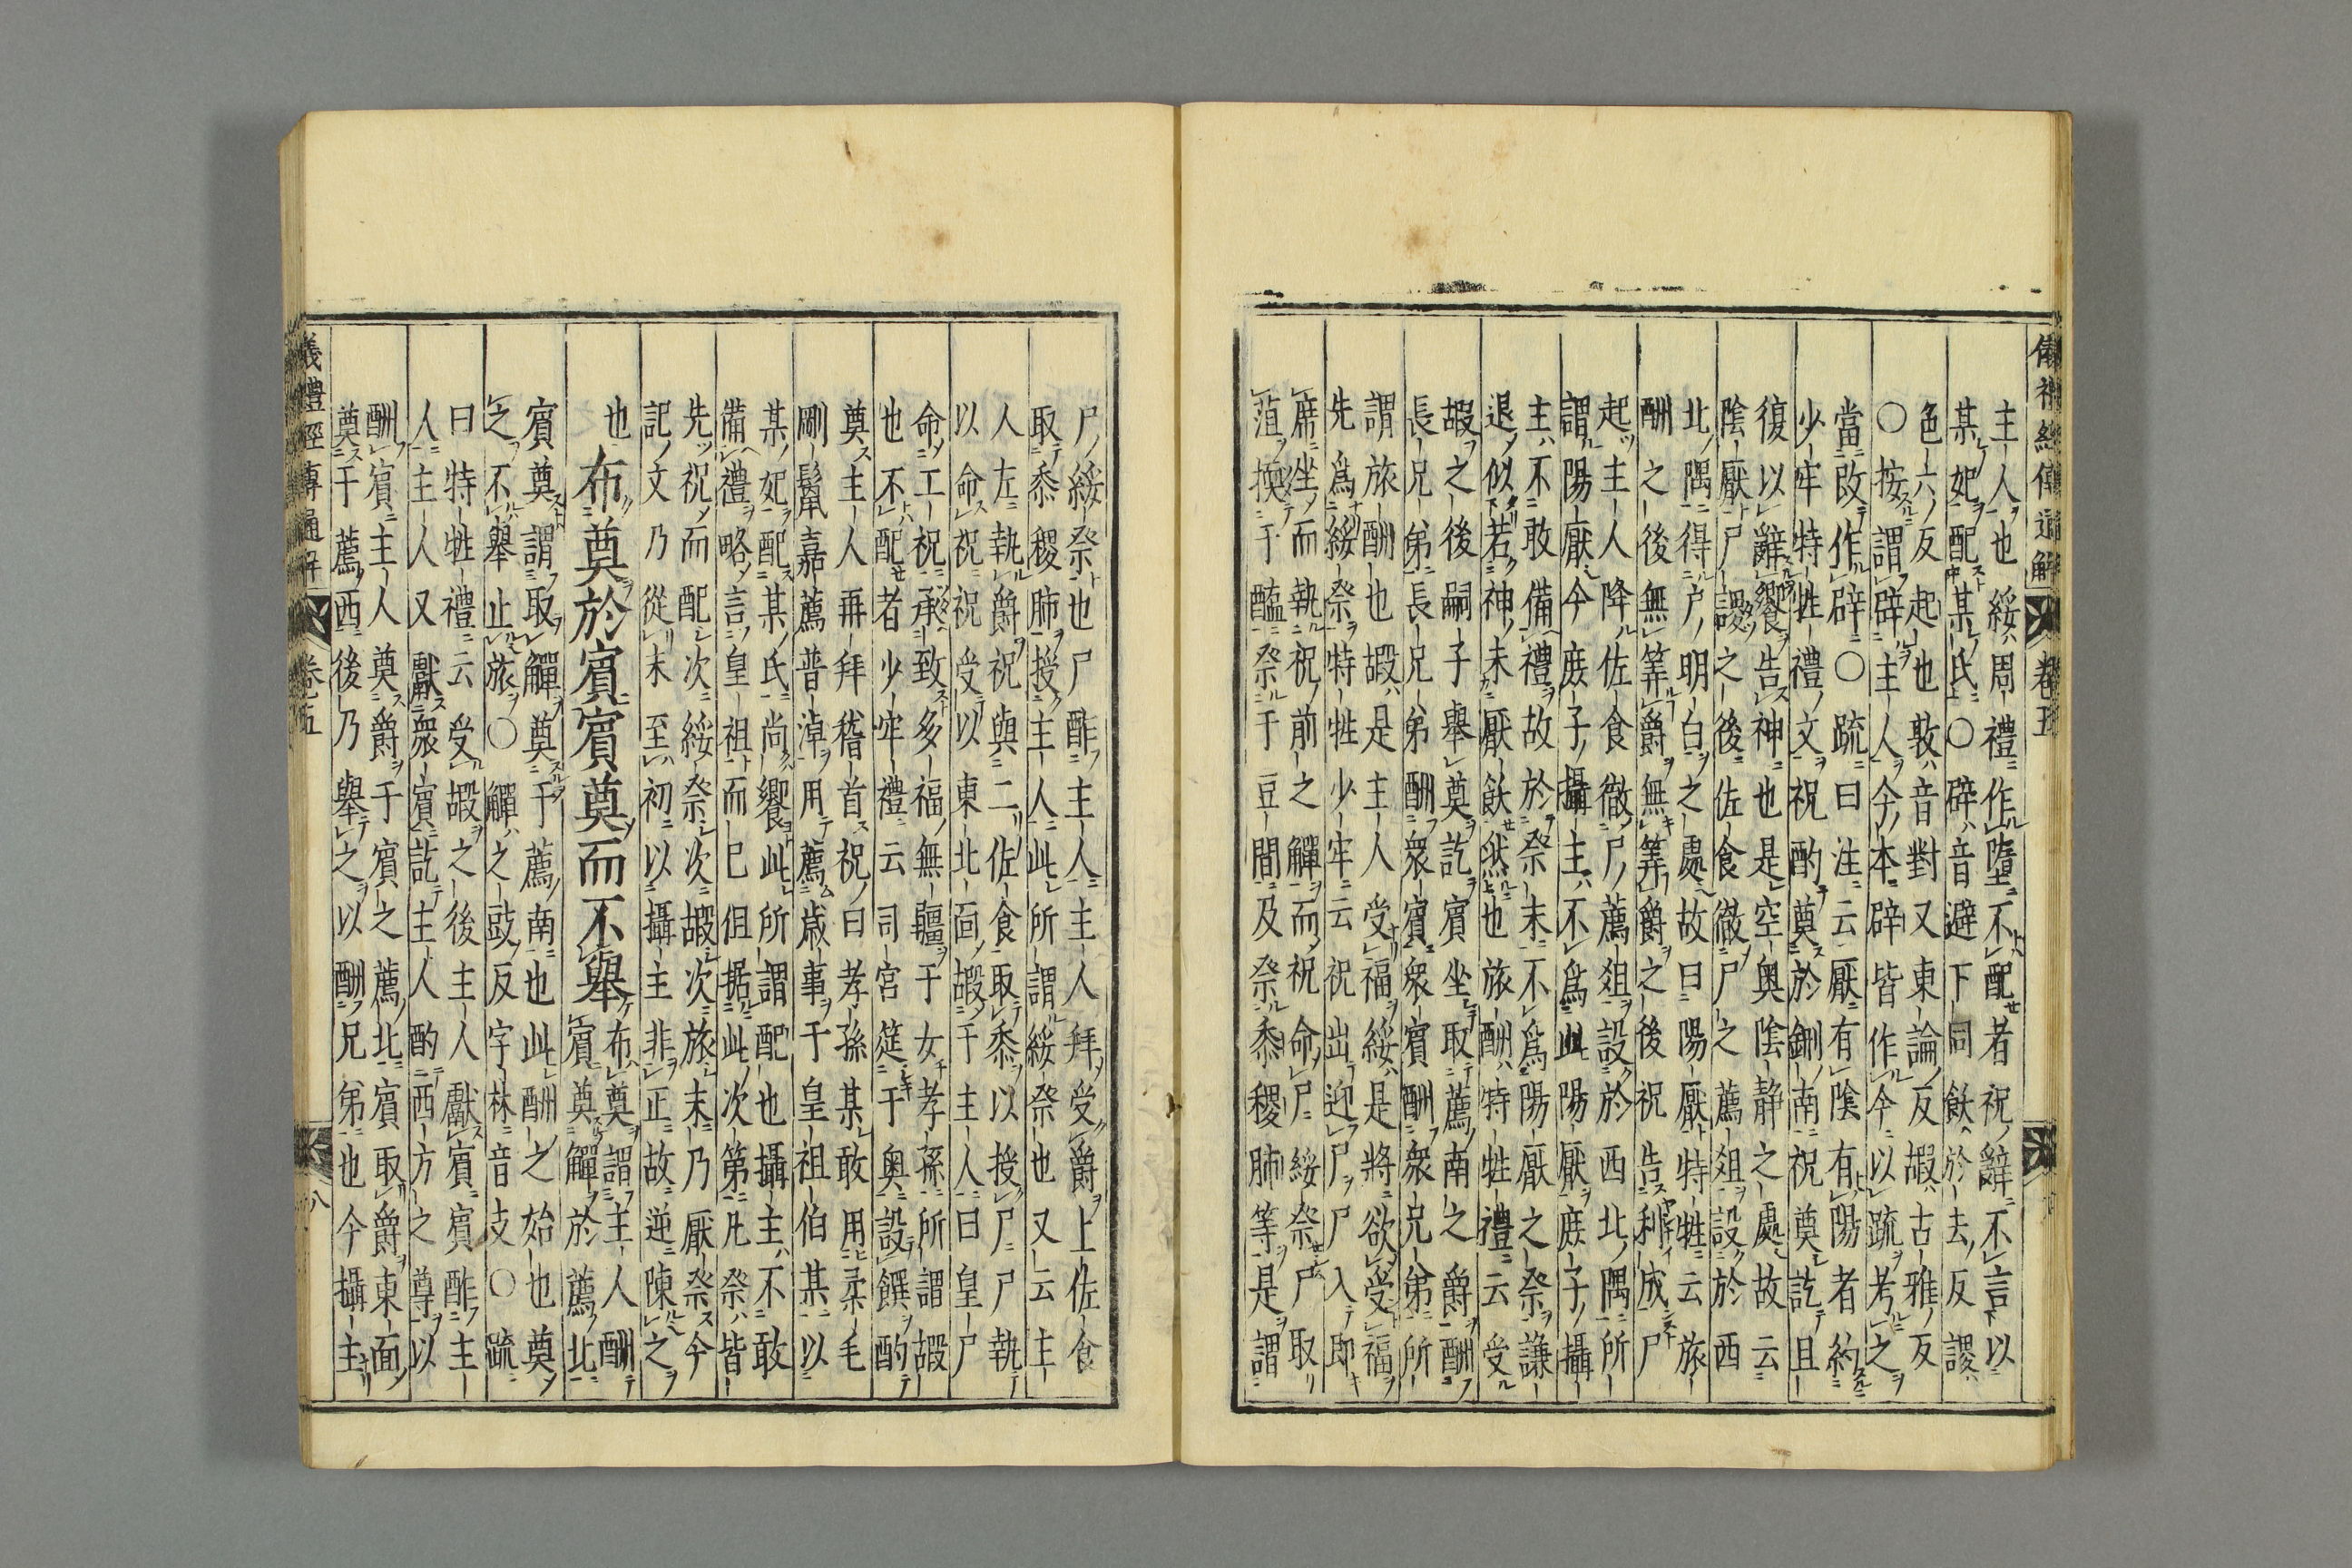 儀禮經傳通解 卷五
主人也綏周禮作墮不配者祝辭不言以
某妃配某氏○辟音避下同飫於去反謖
色六反起也敦音對又東論反嘏古雅反
○按謂辟主人今本辟皆作今以疏考之
當改作辟○疏曰注云厭有陰有陽者約
少牢特牲禮文祝酌奠於鉶南祝奠訖且
復以辭饗告神也是空奧陰靜之處故云
陰厭尸謖之後佐食徹尸之薦俎設於西
北隅得戶明白之處故曰陽厭特牲云旅
酬之後無筭爵無筭爵之後祝告利成尸
起主人降佐食徹尸薦俎設於西北隅所
謂陽厭今庶子攝主不爲此陽厭庶子攝
主不敢備禮故於祭末不爲陽厭之祭謙
退似若神未厭飫然也旅酬特牲禮云受
嘏之後嗣子舉奠訖賓坐取薦南之爵酬
長兄弟長兄弟酬衆賓衆賓酬衆兄弟所
謂旅酬也嘏是主人受福綏是將欲受福
先爲綏祭特牲少牢云祝出迎尸尸入即
席坐而執祝前之觶而祝命尸綏祭尸取
菹擩于醢祭于豆間及祭黍稷肺等是謂
尸綏祭也尸酢主人主人拜受爵上佐食
取黍稷肺授主人此所謂綏祭也又云主
人左執爵祝與二佐食取黍以授尸尸執
以命祝祝受以東北面嘏于主人曰皇尸
命工祝承致多福無疆于女孝孫所謂嘏
也不配者少牢禮云司宮筵于奧設饌酌
奠主人再拜稽首祝曰孝孫某敢用柔毛
剛鬣嘉薦普淖用薦歲事于皇祖伯某以
某妃配某氏尚饗此所謂配也攝主不敢
備禮略言皇祖而已但据此次第凡祭皆
先祝而配次綏祭次嘏次旅末乃厭祭今
記文乃從末至初以攝主非正故逆陳之
也
布奠於賓賓奠而不舉
布奠謂主人酬
賓奠觶於薦北
賓奠謂取觶奠于薦南也此酬之始也奠
之不舉止旅○觶之豉反字林音支○疏
曰特牲禮云受嘏之後主人獻賓賓酢主
人主人又獻衆賓訖主人酌西方之尊以
酬賓主人奠爵于賓之薦北賓取爵東面
奠于薦西後乃舉之以酬兄弟也今攝主
儀禮經傳通解 卷五 八